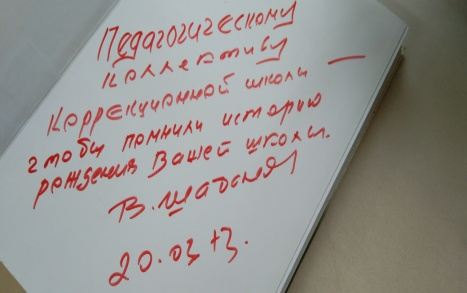 Педагогическому
коллективу
Коррекционной школы —
чтобы помнили историю
рождения Вашей школы.
20.03